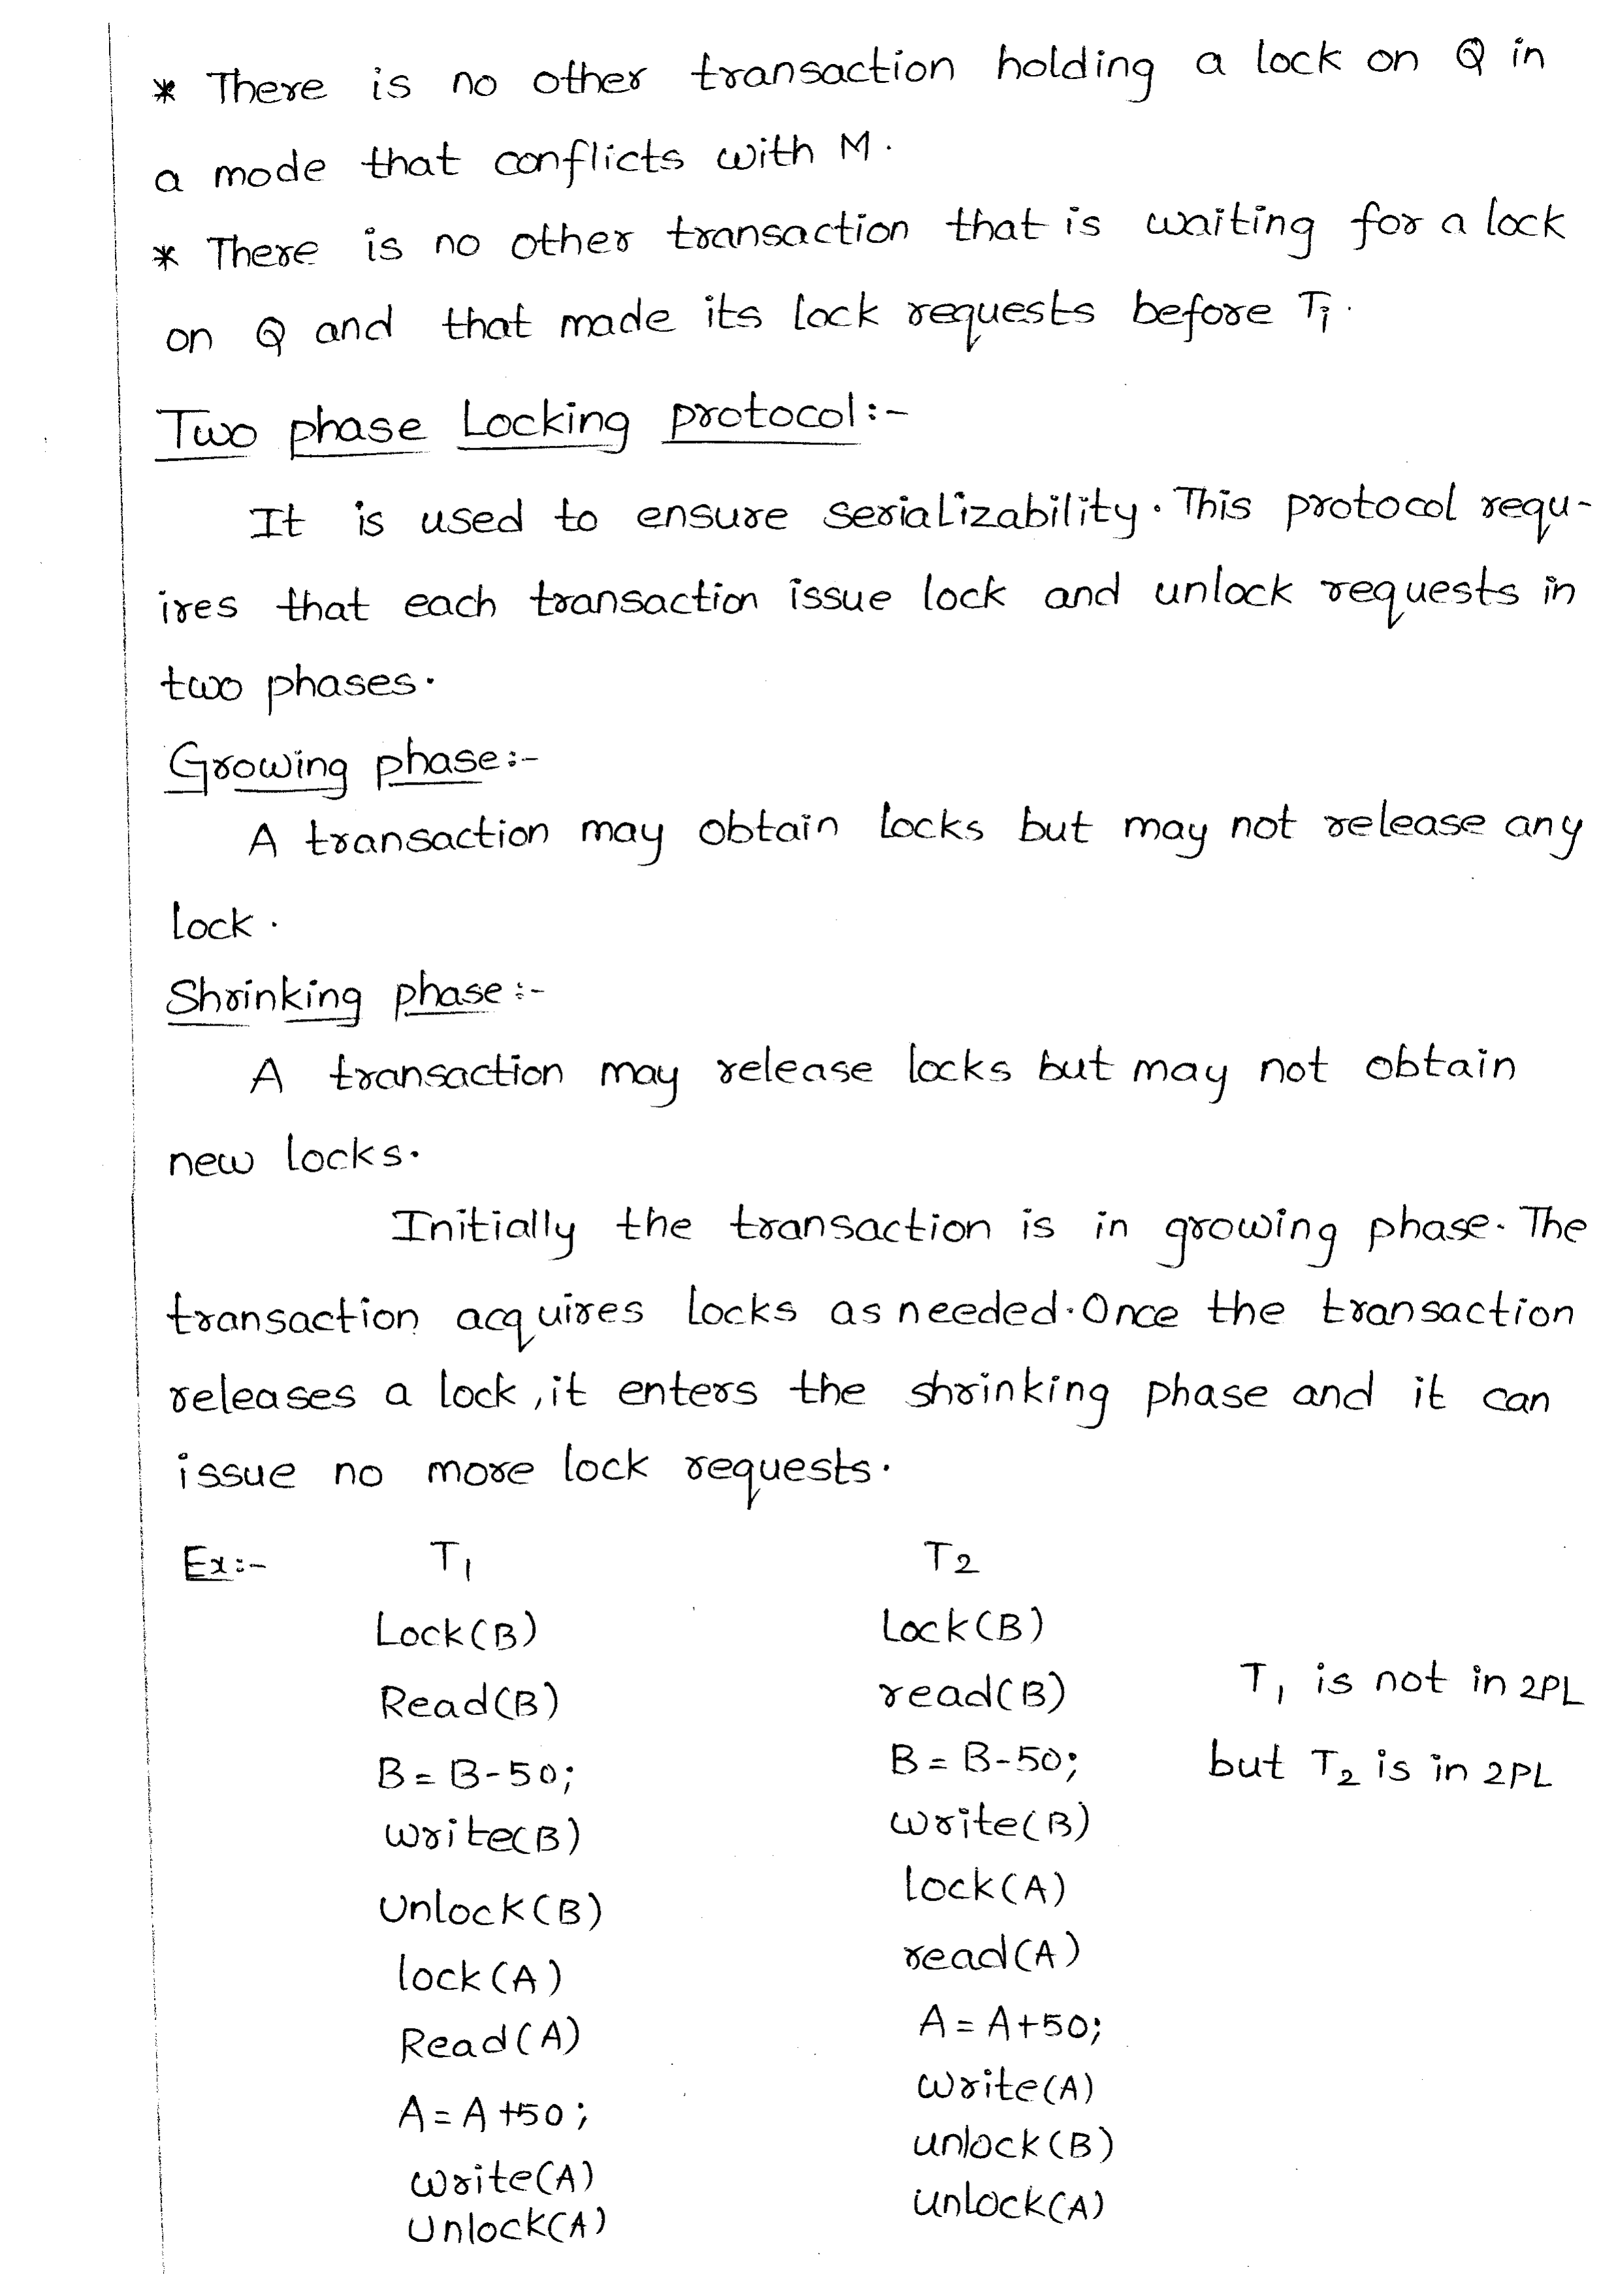 * There is no other transaction holding a lock on Q in
a mode that conflicts with M.
* There is no other transaction that is waiting for a lock
on Q and that made its lock requests before Ti.
Two phase Locking protocol:-
It is used to ensure serializability. This protocol requ-
ires that each transaction issue lock and unlock requests in
two phases.
Growing phase:-
A transaction may obtain locks but may not release any
lock.
Shrinking phase:-
A transaction may release locks but may not obtain
new locks.
Initially the transaction is in growing phase. The
transaction acquires locks as needed. Once the transaction
releases a lock, it enters the shrinking phase and it can
issue no more lock requests.
Ex:- T1 T2
Lock(B) Lock(B)
Read(B) read(B) T1 is not in 2PL
B = B-50; B = B-50; but T2 is in 2PL
write(B) write(B)
Unlock(B) lock(A)
lock(A) read(A)
Read(A) A = A+50;
A = A+50; write(A)
write(A) unlock(B)
Unlock(A) unlock(A)